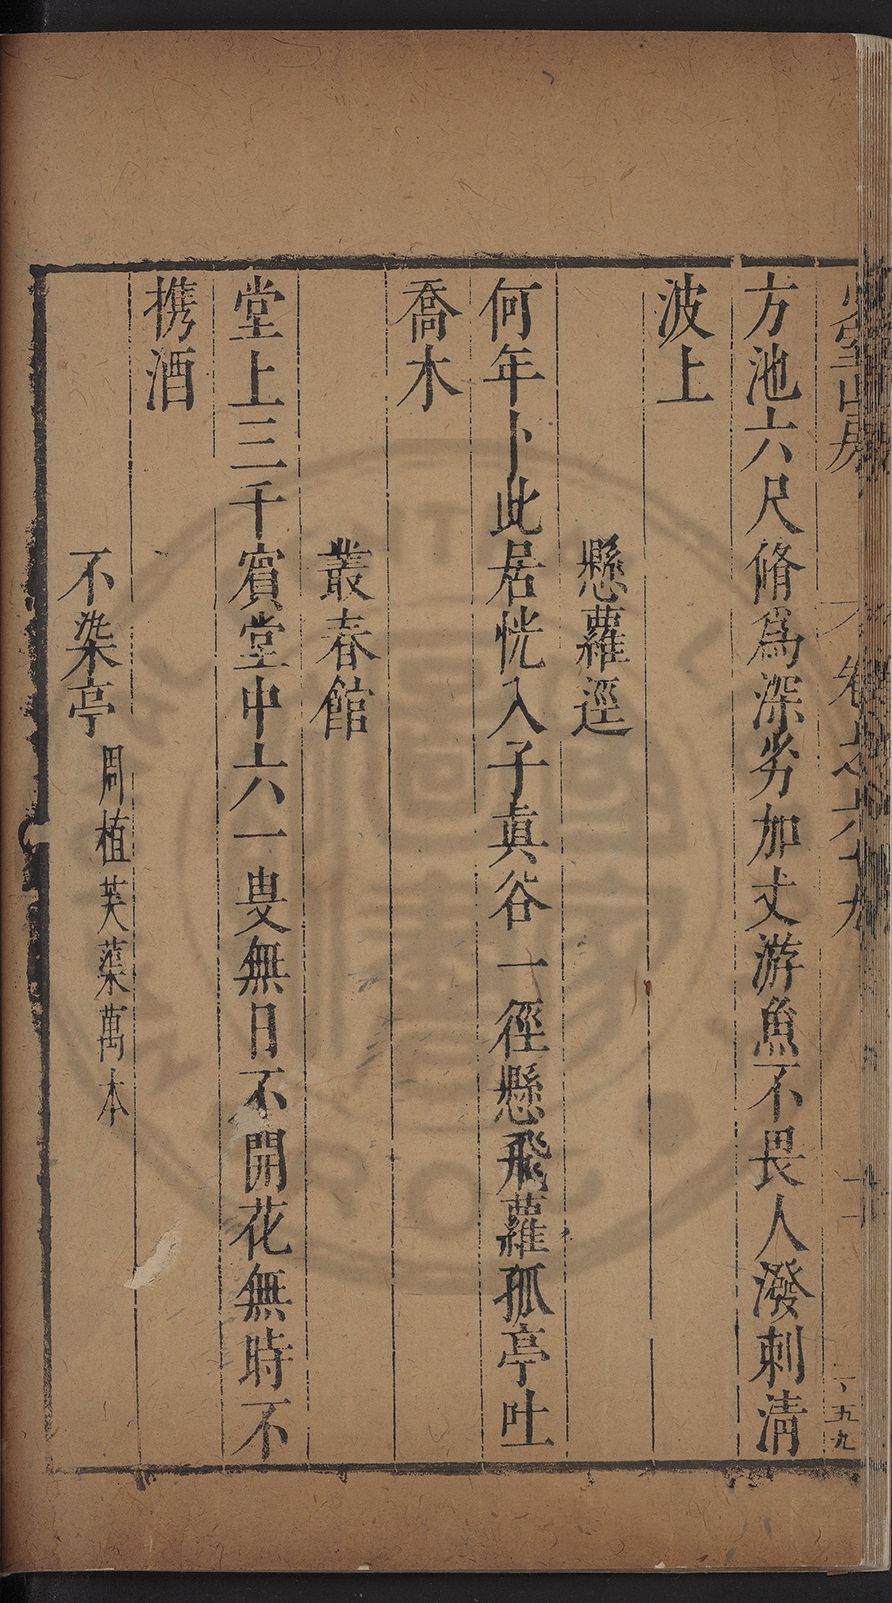 方池六尺脩爲深労加丈游魚不畏人潑剌清
波上
懸蘿逕
何年卜此居恍入子眞谷一徑懸飛蘿孤亭吐
喬木
叢春館
堂上三千賓堂中六一叟無日不開花無時不
携酒
不染亭 周植芙蕖萬本